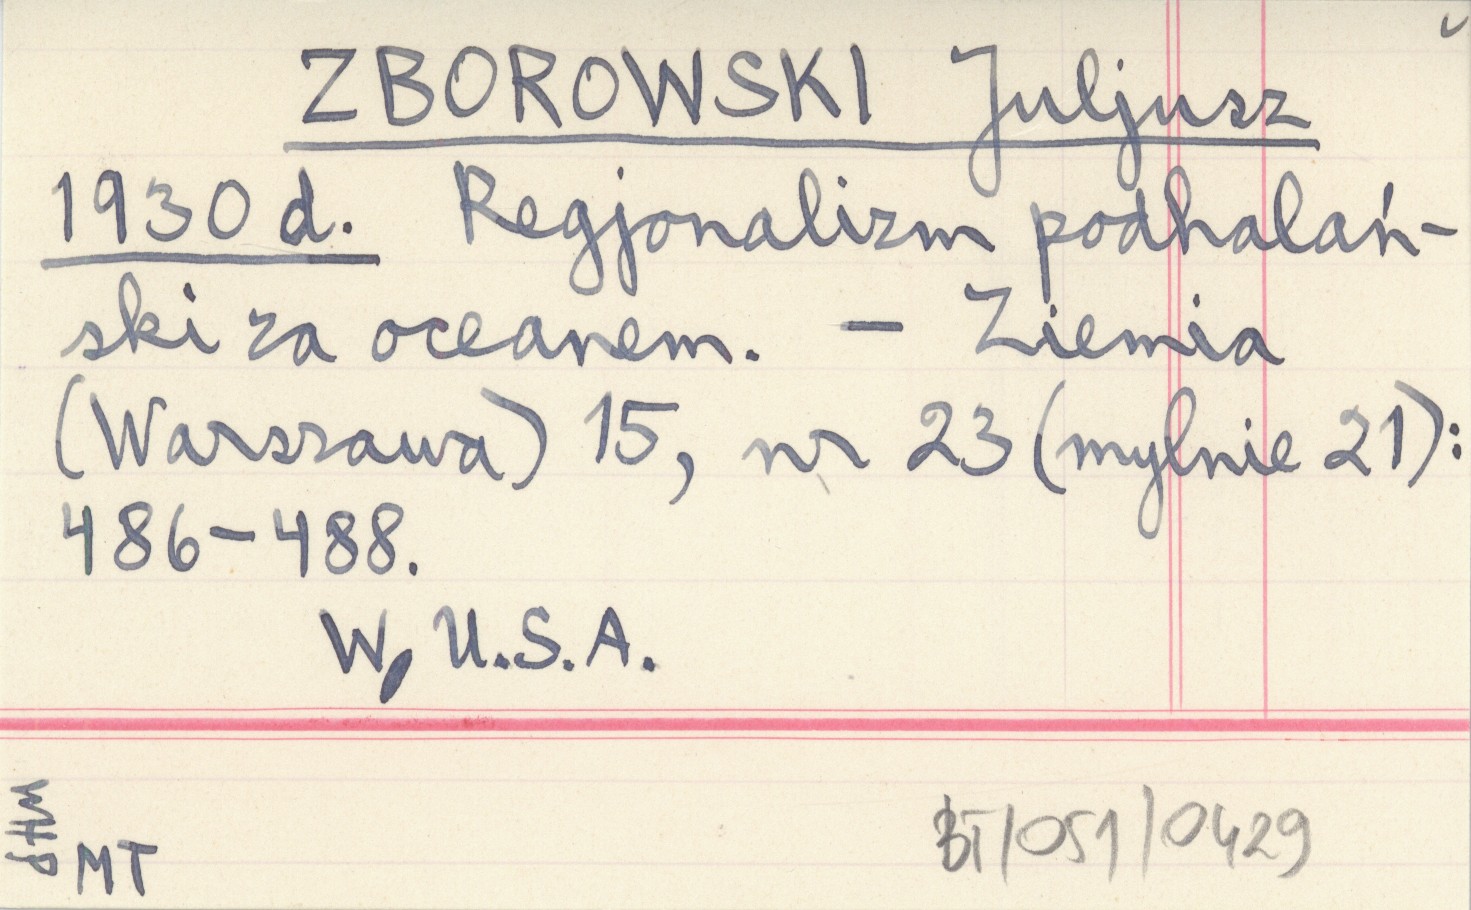 ZBOROWSKI Juljusz
1930 d. Regjonalizm podhalań-
ski za oceanem. – Ziemia
(Warszawa) 15, nr 23 (mylnie 21):
486–488.
W U.S.A.
MT
BT/051/0429